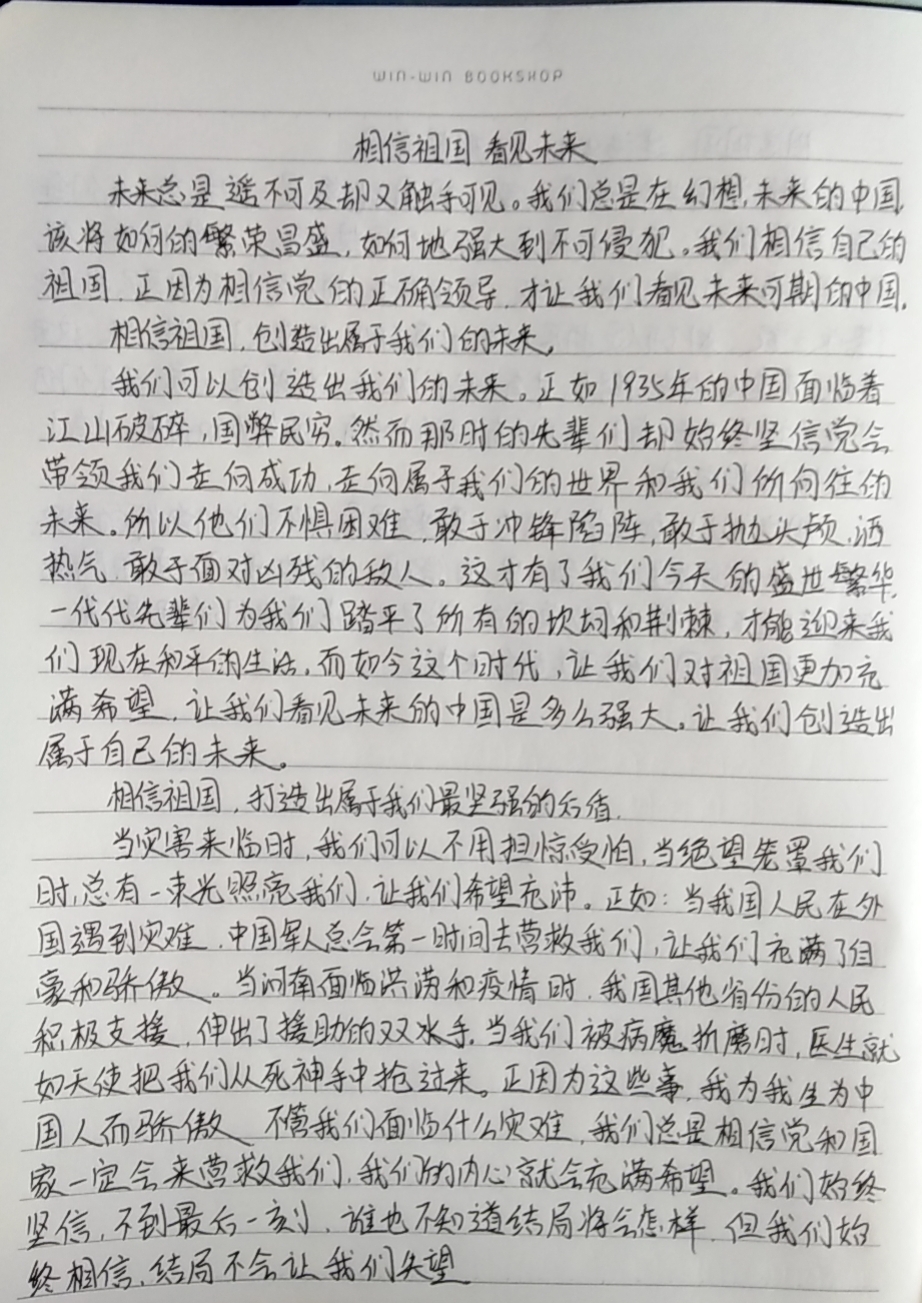 WIN-WIN BOOKSHOP
相信祖国 看见未来
未来总是遥不可及却又触手可见。我们总是在幻想,未来的中国,
该将如何的繁荣昌盛,如何地强大到不可侵犯。我们相信自己的
祖国,正因为相信党的正确领导,才让我们看见未来可期的中国.
相信祖国,创造出属于我们的未来。
我们可以创造出我们的未来。正如1935年的中国面临着
江山破碎,国弊民穷。然而那时的先辈们却始终坚信党会
带领我们走向成功,走向属于我们的世界和我们所向往的
未来。所以他们不惧困难,敢于冲锋陷阵,敢于抛头颅,洒
热气,敢于面对凶残的敌人。这才有了我们今天的盛世繁华,
一代代先辈们为我们踏平了所有的坎坷和荆棘,才能迎来我
们现在和平的生活,而如今这个时代,让我们对祖国更加充
满希望,让我们看见未来的中国是多么强大。让我们创造出
属于自己的未来。
相信祖国,打造出属于我们最坚强的后盾.
当灾害来临时,我们可以不用担惊受怕,当绝望笼罩我们
时,总有一束光照亮我们,让我们希望充沛。正如:当我国人民在外
国遇到灾难,中国军人总会第一时间去营救我们,让我们充满了自
豪和骄傲。当河南面临洪涝和疫情时,我国其他省份的人民
积极支援,伸出了援助的双手,当我们被病魔折磨时,医生就
如天使把我们从死神手中抢过来。正因为这些事,我为我生为中
国人而骄傲,不管我们面临什么灾难,我们总是相信党和国
家一定会来营救我们,我们的内心就会充满希望。我们始终
坚信,不到最后一刻,谁也不知道结局将会怎样,但我们始
终相信,结局不会让我们失望